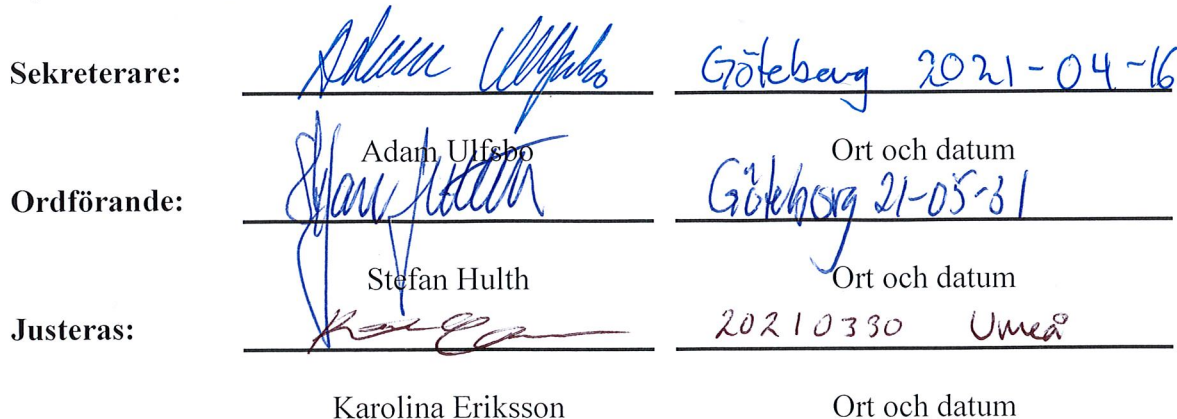 Sekreterare: Adam Ulfsbo Göteborg 2021-04-16
Adam Ulfsbo Ort och datum
Ordförande: Stefan Hulth Göteborg 21-05-31
Stefan Hulth Ort och datum
Justeras: 20210330 Umeå
Karolina Eriksson Ort och datum